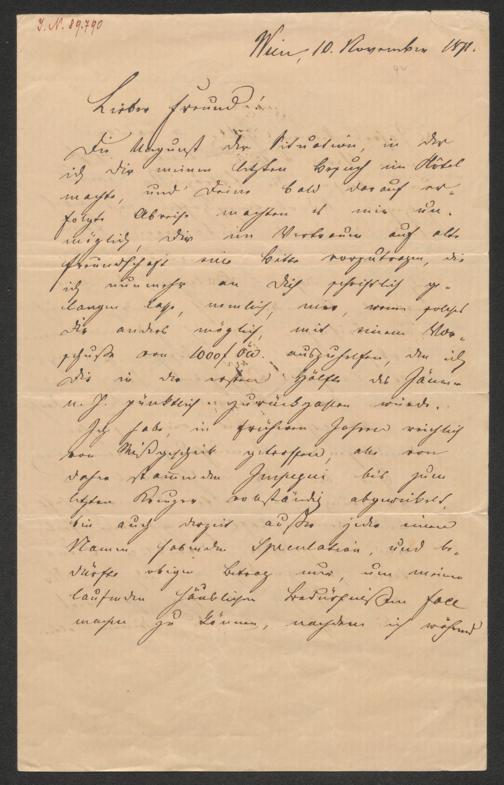 I. N. 89.790
Wien, 10. November 1871.
Lieber Freund!
Die Ungunst der Situation, in der
ich Dir meinen letzten Besuch im Hôtel
machte, und Deine bald darauf er-
folgte Abreise machten es mir un-
möglich, Dir im Vertrauen auf alte
Freundschaft eine Bitte vorzutragen, die
ich nunmehr an Dich schriftlich ge-
langen lasse, nemlich mir, wenn solches
Dir anders möglich, mit einem Vor-
schuße von 1000 f ÖW. auszuhelfen, den ich
Dir in der ersten Hälfte des Jänner
n. J. pünktlich zurückzahlen würde.
Ich habe, in früheren Jahren reichlich
von Mißgeschick getroffen, alle von
daher stammenden Impegni bis zum
letzten Kreuzer vollständig abgewickelt,
bin auch derzeit außer jeder einen
Namen habenden Speculation, und be-
dürfte obigen Betrag nur, um meinen
laufenden häuslichen Bedürfnißen face
machen zu können, nachdem ich während